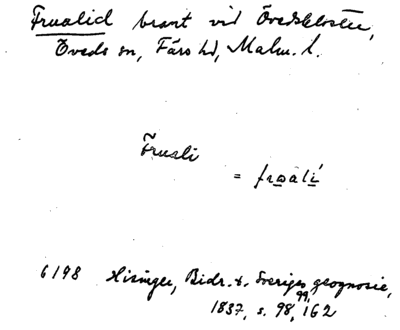 Frualid brant vid Övedskloster,
Öveds sn, Färs hd, Malm. l.
Fruali
= frωalí
6198 Hisinger, Bidr. t. Sveriges geognosie,
99,
1837, s. 98, 162